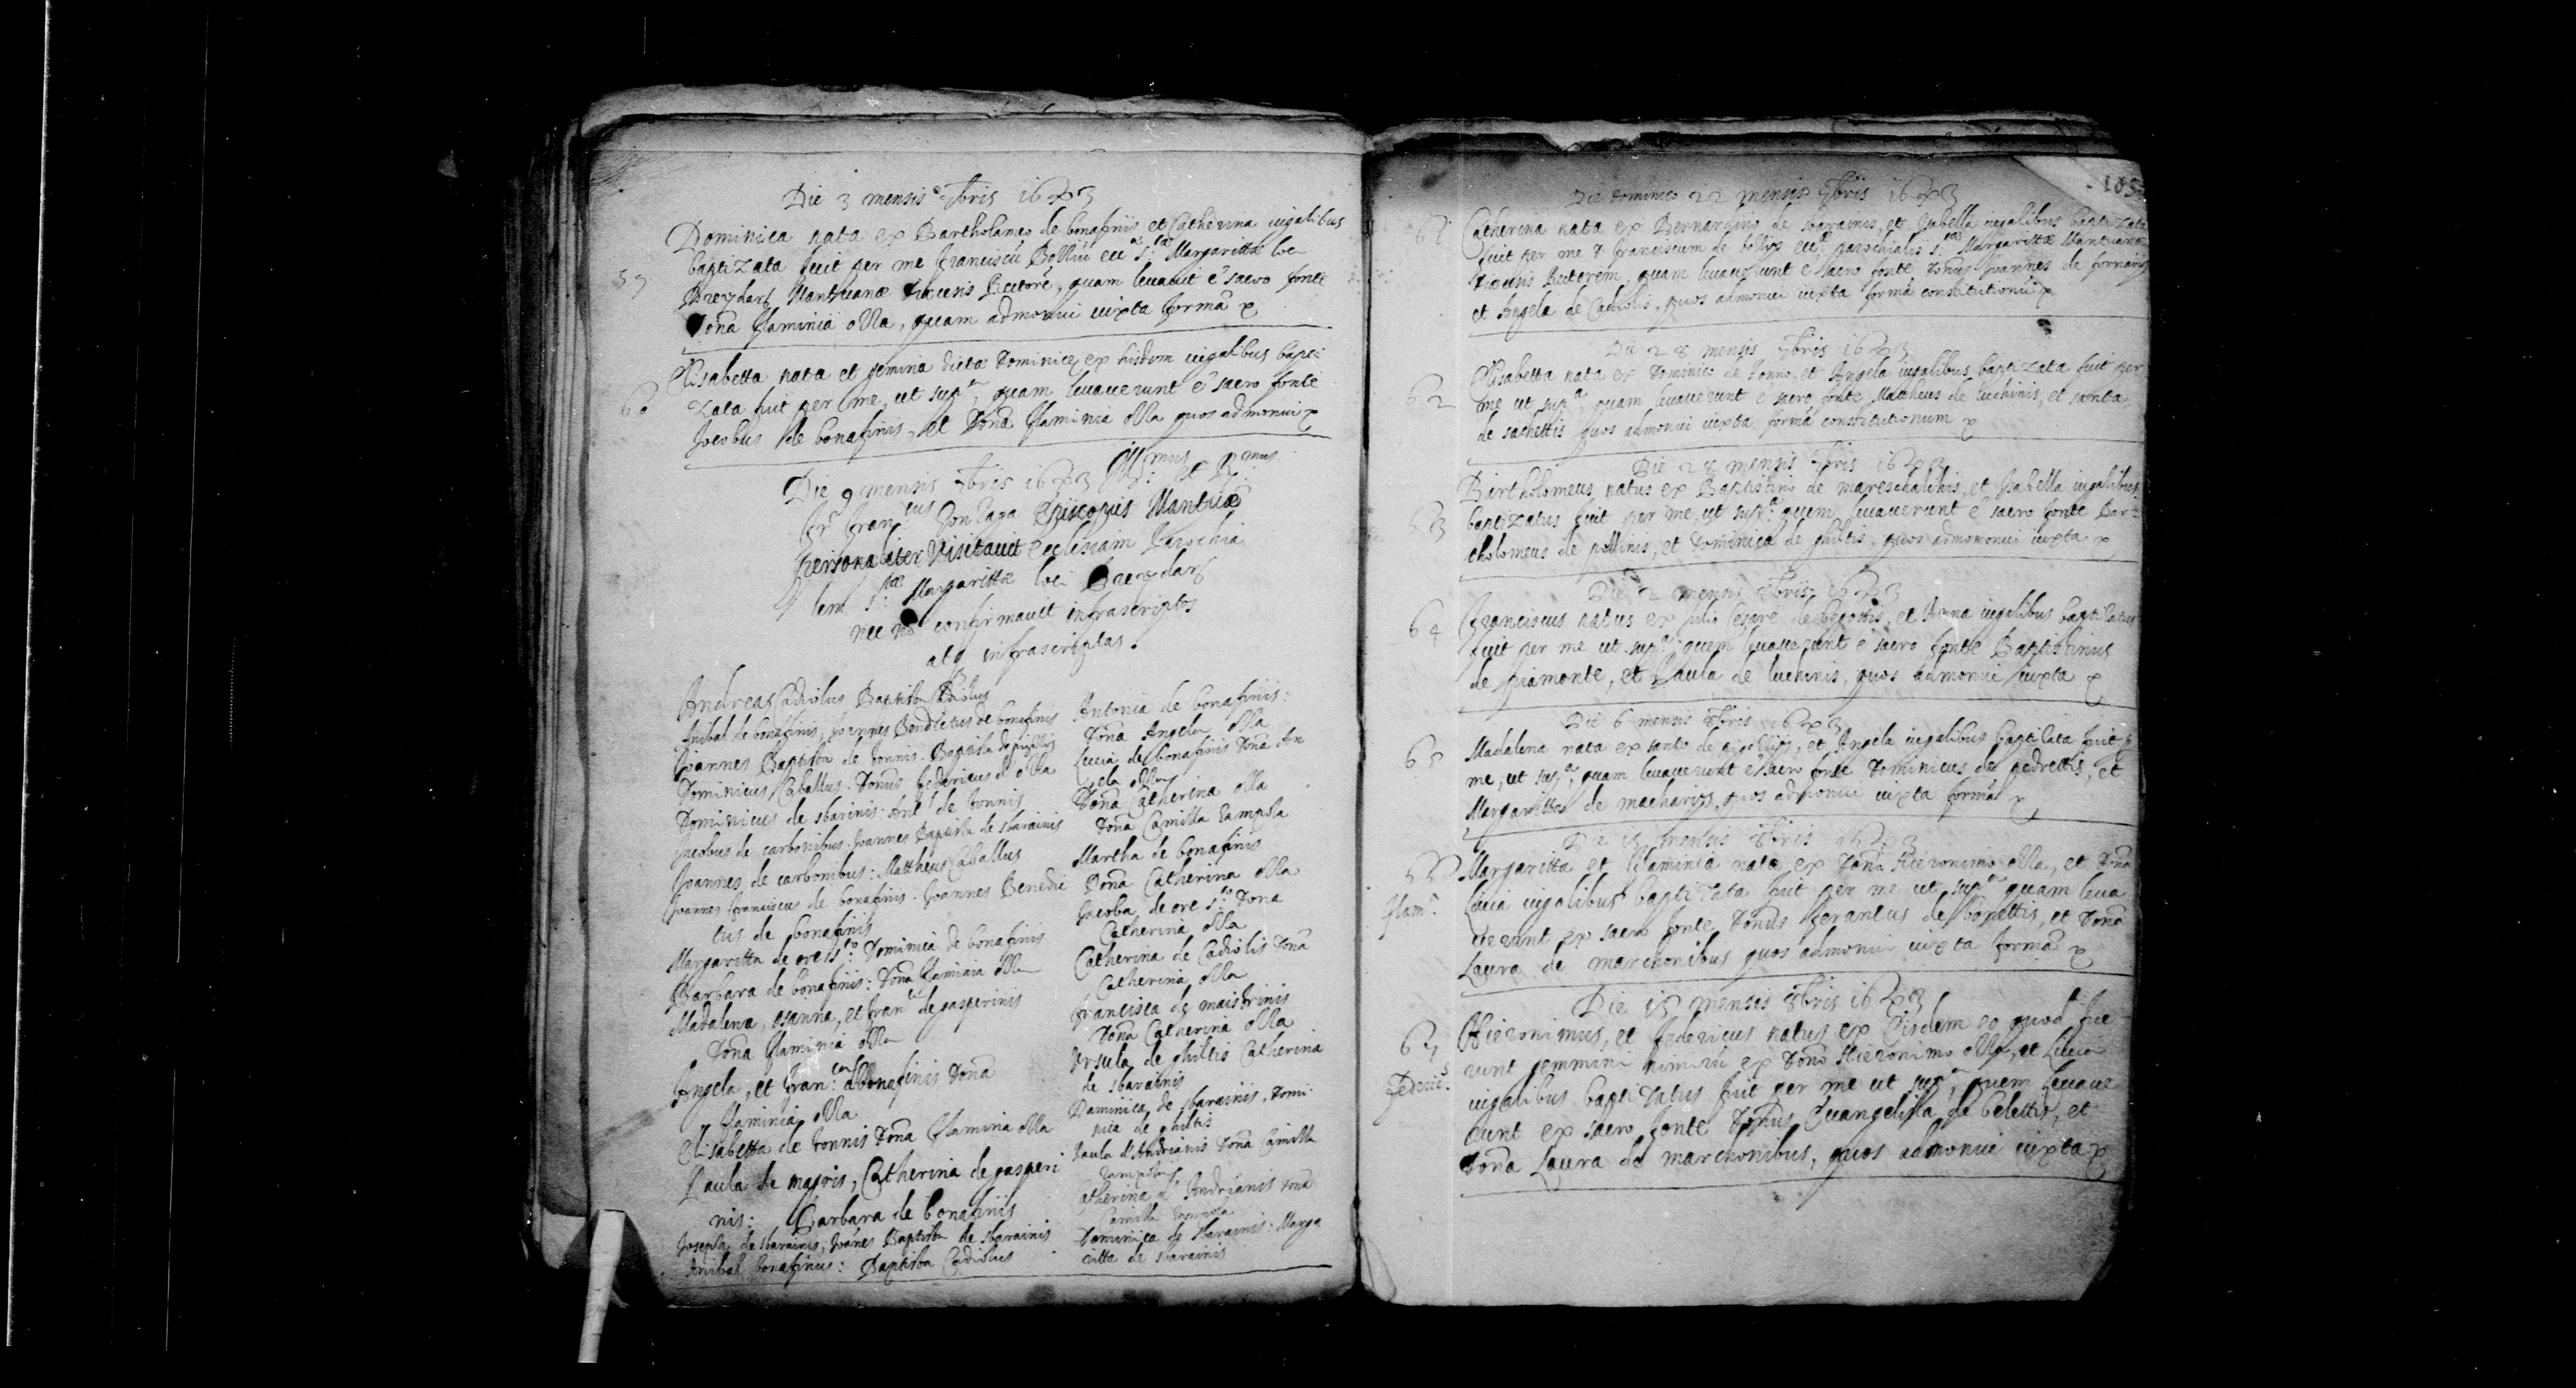 Die 3 mensis 7bris 1603
Dominica nata ex Bartholameo de bonafinis et Catherina iugalibus
baptizata fuit per me franciscū Bolliū ecc.ae S.tae Margarittae loci
59
Mantuanae Diocesis Rectorē, quam levavit e sacro fonte
Dona flaminia olla, quam admonui iuxta formā &
Elisabetta nata et gemina dicta Dominice ex hisdem iugalibus bapti
60
zata fuit per me, ut sup.a, quam levaverunt e sacro fonte
Jacobus de bonafinis, et Dona flaminia olla quos admonui &
Die 9 mensis 7bris 1603 Ill.mus et R.mus
fr. fran.cus Gonzaga Episcopus Mantuae
personaliter visitavit ecclesiam Parochia
lem S.tae Margarittae loci
nec nō confirmavit infrascriptos
atq infrascriptas.
Andreas Cadiolus Baptista
Anibal de bonafinis, Joannes Benedictus de bonafinis
Joannes Baptista de Donnis. Baptista de
Dominicus Caballus. Donus federicus olla
Dominicus de sbarinis. Ant. de Donnis
Jacobus de carbonibus. Joannes Baptista de sbarainis
Joannes de carbonibus: Mattheus Caballus
Joannes franciscus de bonafinis. Joannes Benedic
tus de bonafinis
Margaritta de Dominica de bonafinis
Barbara de bonafinis: Dona flaminia olla
Madalena, osanna, et fran.ca de gasperinis
Dona flaminia olla
Angela, et fran.ca bonafinis Dona
flaminia olla
Elisabetta de Donnis Dona flaminia olla
Paula de magris, Catherina de gasperi
nis: Barbara de bonafinis
Joseph de sbarainis, Joānes Baptista de sbarainis
Anibal bonafinus: Baptista Cadiolus
Antonia de bonafinis:
Dona Angela olla
Lucia de bonafinis Dona An
gela olla
Dona Catherina olla
Dona Camilla
Martha de bonafinis
Dona Catherina olla
Jacoba de ore Dona
Catherina olla
Catherina de Cadiolis Dona
Catherina olla
francisca de maistrinis
Dona Catherina olla
Ursula de ghiltis Catherina
de sbarainis
Dominica de sbarainis. Domi
nica de ghiltis
Paula d'Andrianis Dona Camilla
Catherina d' Andrianis Dona
Camilla
Dominica de sbarainis: Marga
ritta de sbarainis
105
Die dominico 22 mensis 7bris 1603
61
Catherina nata ex Bernardino de sbarainis, et Isabella iugalibus baptizata
fuit per me franciscum de bollis ecc.ae parochialis S.tae Margarittae Mantuanae
Diocesis Rectorem, quam levaverunt e sacro fonte Donus Joannes de fornaris
et Angela de Cadiolis, quos admonui iuxta formā constitutionū &
Die 28 mensis 7bris 1603
62
Elisabetta nata ex Dominico de Donno, et Angela iugalibus baptizata fuit per
me ut sup.a, quam levaverunt e sacro fonte Mattheus de luchinis, et santa
de sachettis quos admonui iuxta formā constitutionum &
Die 28 mensis 7bris 1603
63
Bartholomeus natus ex Baptistino de mareschalchis, et Isabella iugalibus
baptizatus fuit per me, ut sup.a quem levaverunt e sacro fonte Bar-
tholomeus de pollinis, et Dominica de ghiltis, quos admomonui iuxta &
Die 2 mensis 8bris 1603
64
franciscus natus ex Julio Cesare de begottis, et Anna iugalibus baptizatus
fuit per me ut sup.a quem levaverunt e sacro fonte Baptistinus
de piamonte, et Paula de luchinis, quos admonui iuxta &
Die 6 mensis 8bris 1603
65
Madalena nata ex santo de et Angela iugalibus baptizata fuit p
me, ut sup.a, quam levaverunt e sacro fonte Dominicus de pedrettis, et
Margaritta de machariis, quos admonui iuxta formā &
Die 15 mensis 8bris 1603
flam.a
Margaritta et flaminia nata ex Dono Hieronimo olla, et Dona
Lucia iugalibus baptizata fuit per me ut sup.a quam leva
verunt ex sacro fonte Donus ferantus de bonettis, et Dona
Laura de marchonibus quos admonui iuxta formā &
Die 15 mensis 8bris 1603
67
federic.s
Hieronimus, et federicus natus ex Eisdem eo quod fue
runt gemmini nimirū ex Dono Hieronimo olla, et Lucia
iugalibus baptizatus fuit per me ut sup.a, quem levave
runt ex sacro fonte Donus Evangelista de belettis, et
Dona Laura de marchonibus, quos admonui iuxta &